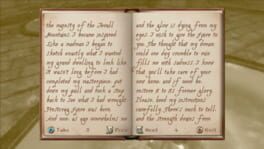 the majesty of the Jerall
Mountains I became inspired
Like a madman I began to
sketch exactly what I wanted
my grand dwelling to look like
It wasn't long before I had
completed my masterpiece. put
down my quill and took a step
back to see what I had wrought.
Frostcrag Spire was born.
And now, as age overwhelms me
and the glow is dying from my
eyes. I wish to give the spire to
you. The thought that my dream
could one day crumble to ruin
fills me with sadness. I know
that you'll take care of your
new home and if need be,
restore it to its former glory.
Please, heed my instructions
carefully, there's much to tell,
and the strength drains from
Take 3 Prev Next 4 Exit